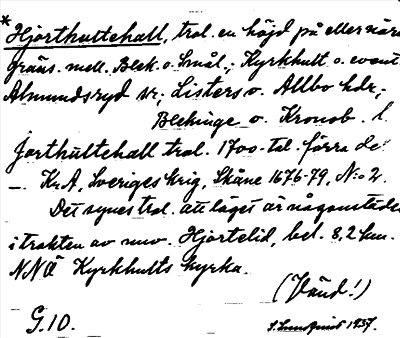 * Hjorthultehall, trol. en höjd på eller nära
gräns. mell. Blek. o. Smål.; Kyrkhult o. event.
Almundsryd sr; Listers o. Allbo hdr;
Blekinge o. Kronob. l.
Jorthultehall trol. 1700-tal. förra del
—. Kr.A, Sveriges krig, Skåne 1676-79, N:o 2.
Det synes trol. att läget är någonstädes
i trakten av nuv. Hjortelid, bel. 8,2 km.
NNÖ Kyrkhults kyrka.
(Vänd!)
G.10. S. Lundquist 1937.